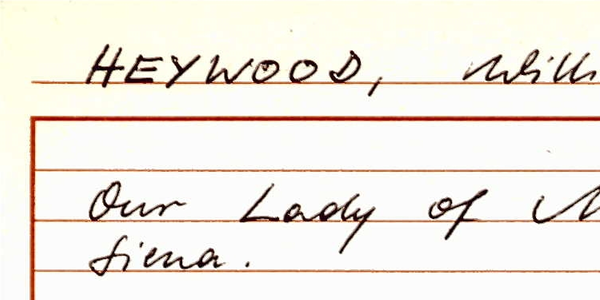 HEYWOOD, Willi
Our Lady of
Siena.